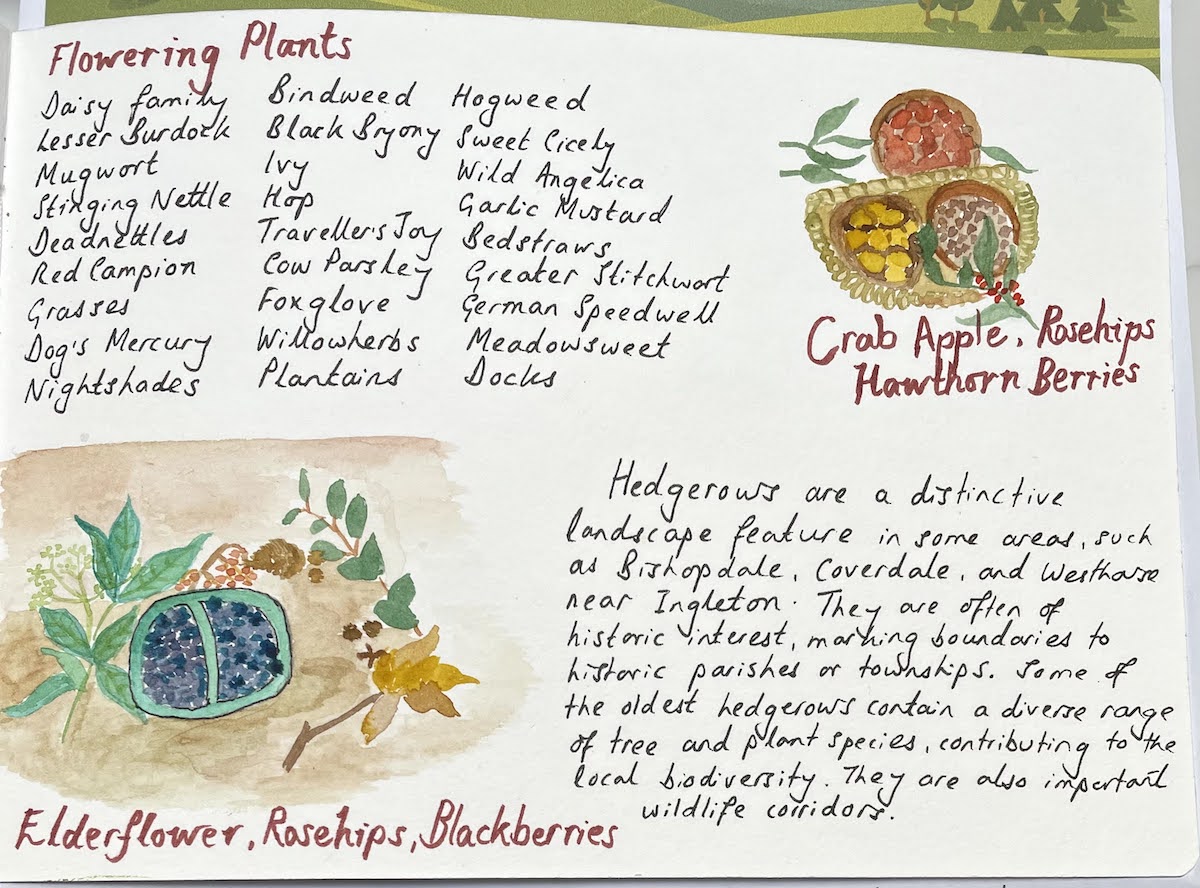 Flowering Plants
Daisy family
Lesser Burdock
Mugwort
Stinging Nettle
Deadnettles
Red Campion
Grasses
Dog's Mercury
Nightshades
Bindweed
Black Bryony
Ivy
Hop
Traveller's Joy
Cow Parsley
Foxglove
Willowherbs
Plantains
Hogweed
Sweet Cicely
Wild Angelica
Garlic Mustard
Bedstraws
Greater Stitchwort
German Speedwell
Meadowsweet
Docks
Crab Apple, Rosehips
Hawthorn Berries
Hedgerows are a distinctive
landscape feature in some areas, such
as Bishopdale, Coverdale, and Westhouse
near Ingleton. They are often of
historic interest, marking boundaries to
historic parishes or townships. Some of
the oldest hedgerows contain a diverse range
of tree and plant species, contributing to the
local biodiversity. They are also important
wildlife corridors.
Elderflower, Rosehips, Blackberries